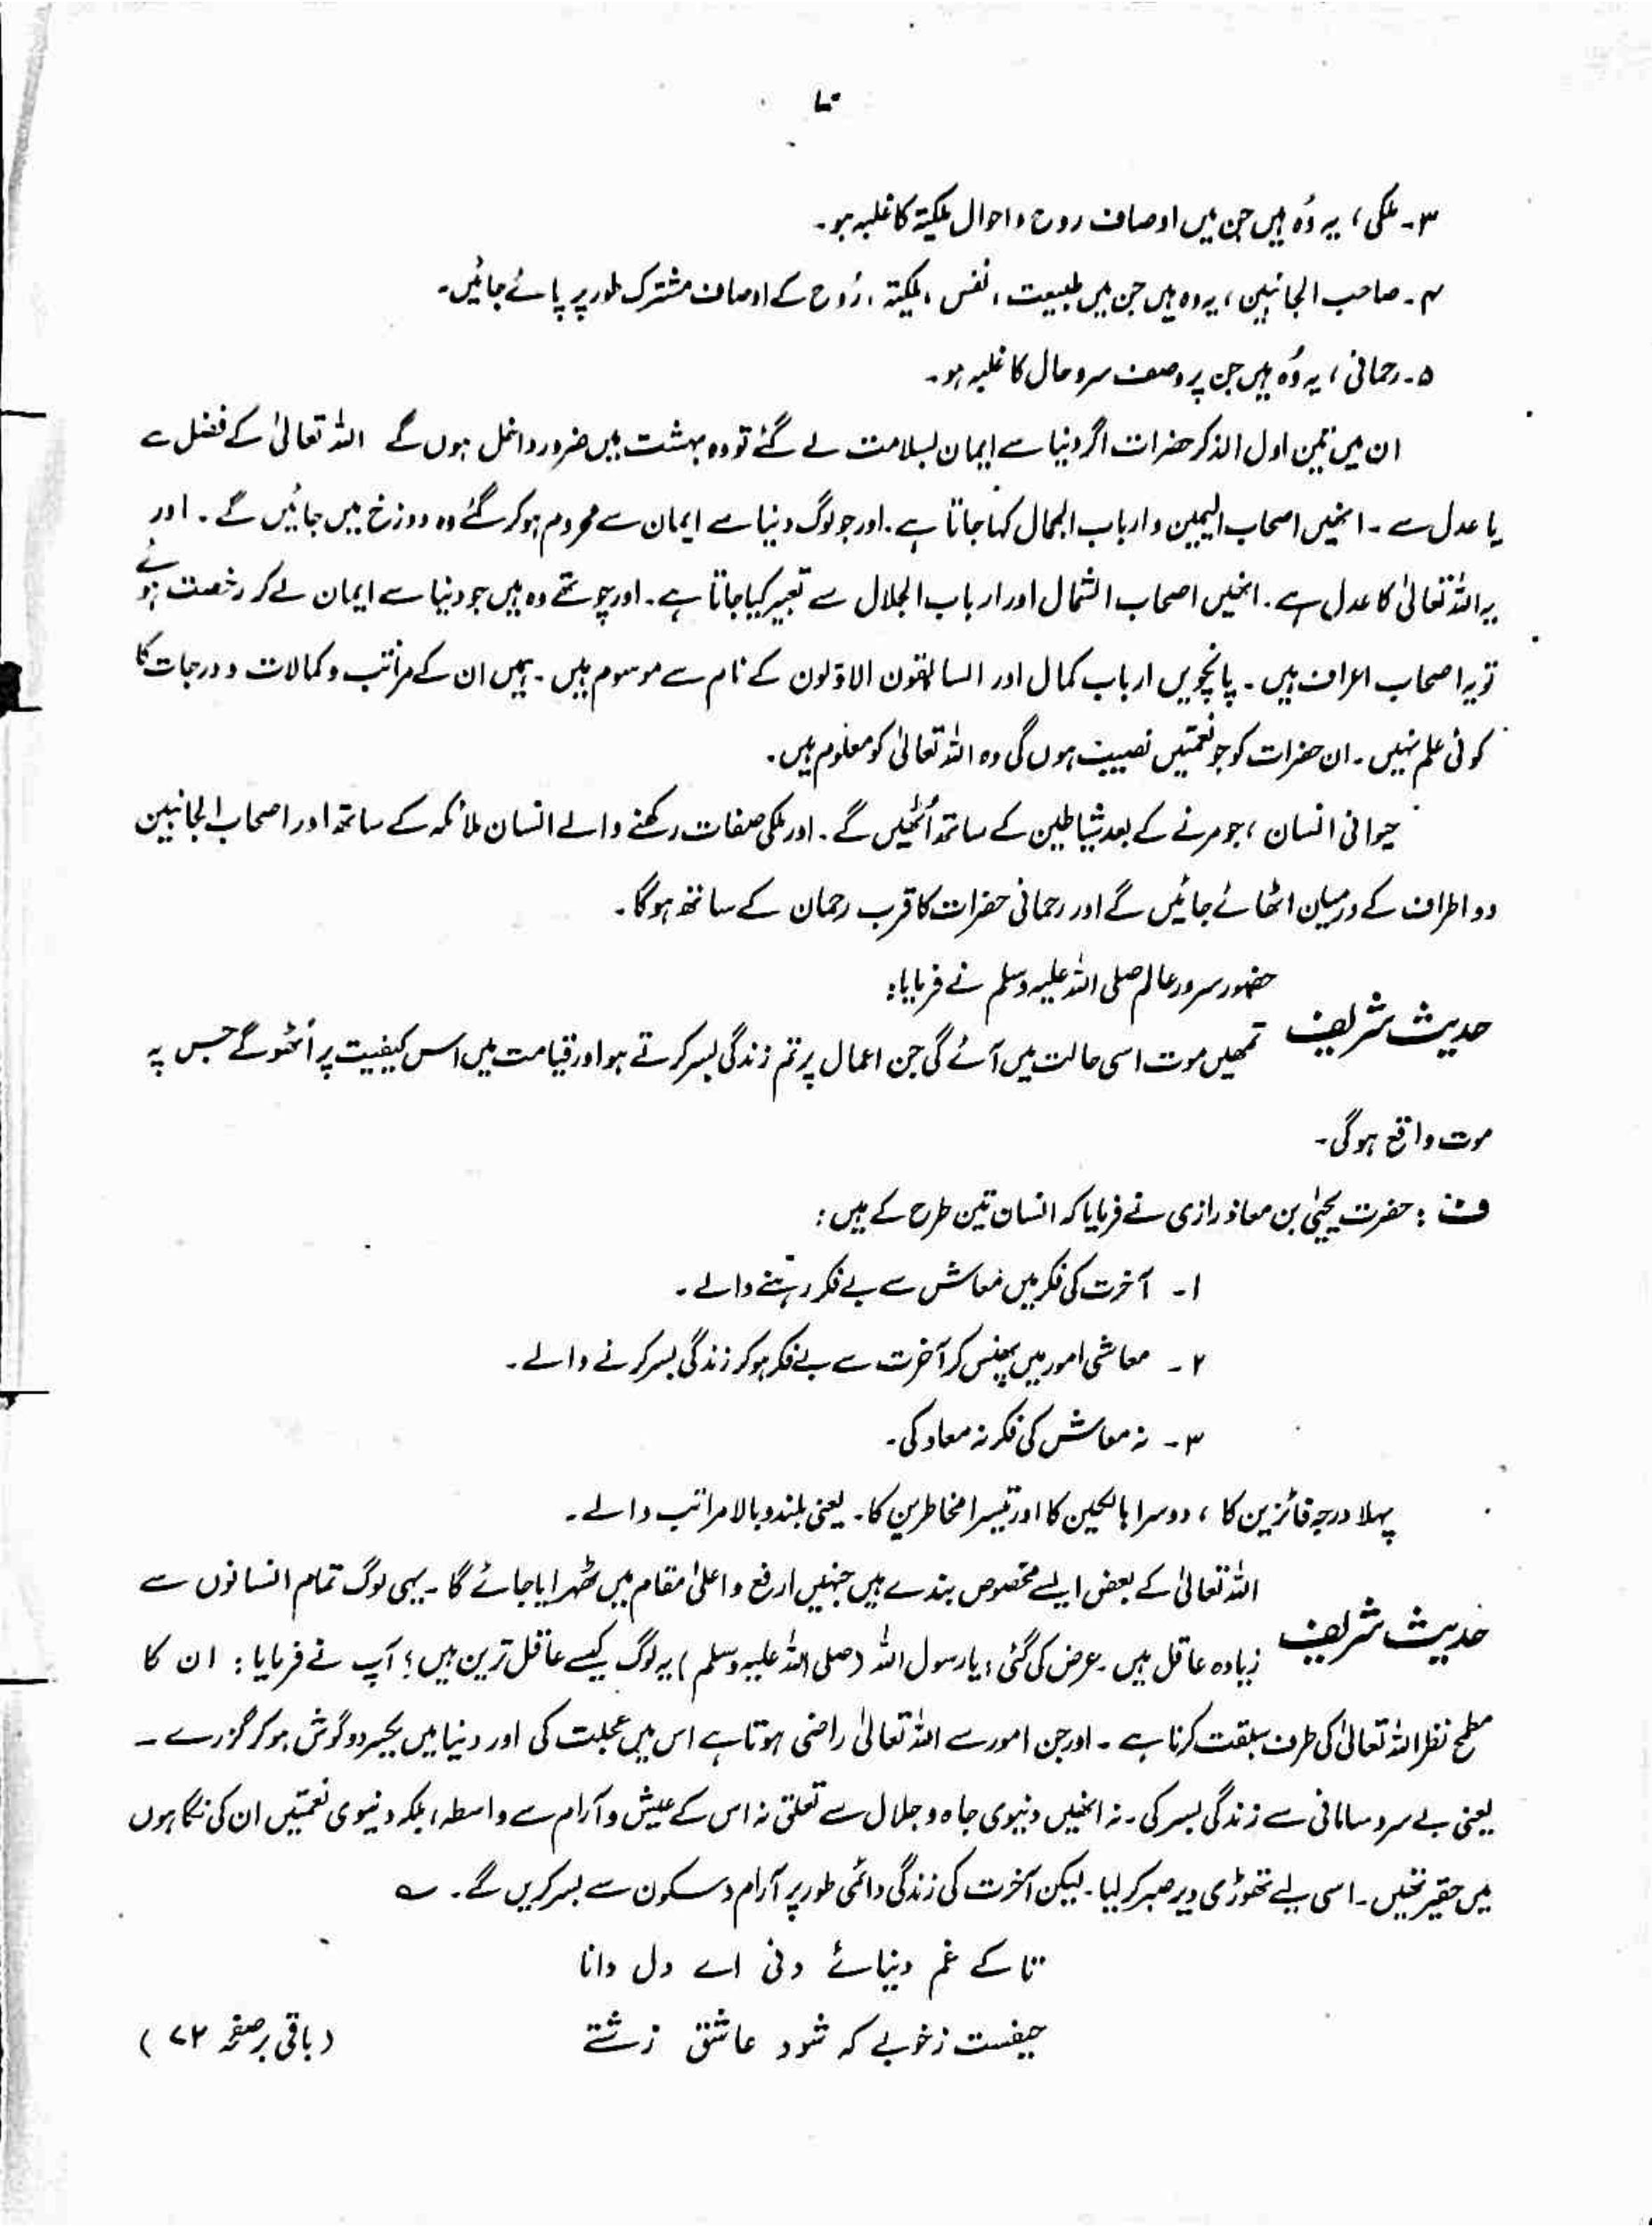 ۳۔ ملکی، یہ وُہ ہیں جن میں اوصاف روح و احوال ملکیۃ کا غلبہ ہو۔
۴۔ صاحب الجانبین، یہ وہ ہیں جن میں طبیعت، نفس، ملکیتہ، رُوح کے اوصاف مشترک طور پر پائے جائیں۔
۵۔ رحمانی، یہ وُہ ہیں جن پر وصف سر و حال کا غلبہ ہو۔
ان میں تین اول الذکر حضرات اگر دنیا سے ایمان بسلامت لے گئے تو وہ بہشت میں ضرور داخل ہوں گے اللہ تعالیٰ کے فضل سے
یا عدل سے۔ انھیں اصحاب الیمین و ارباب الجمال کہا جاتا ہے۔ اور جو لوگ دنیا سے ایمان سے محروم ہو کر گئے وہ دوزخ میں جائیں گے۔ اور
یہ اللہ تعالیٰ کا عدل ہے۔ انھیں اصحاب الشمال اور ارباب الجلال سے تعبیر کیا جاتا ہے۔ اور چوتھے وہ ہیں جو دنیا سے ایمان لے کر رخصت ہوئے
تو یہ اصحاب اعراف ہیں۔ پانچویں ارباب کمال اور السابقون الاوّلون کے نام سے موسوم ہیں۔ ہمیں ان کے مراتب و کمالات و درجات کا
کوئی علم نہیں۔ ان حضرات کو جو نعمتیں نصیب ہوں گی وہ اللہ تعالیٰ کو معلوم ہیں۔
حیوانی انسان، جو مرنے کے بعد شیاطین کے ساتھ اُٹھیں گے۔ اور ملکی صفات رکھنے والے انسان ملائکہ کے ساتھ اور اصحاب الجانبین
دو اطراف کے درمیان اٹھائے جائیں گے اور رحمانی حضرات کا قرب رحمان کے ساتھ ہوگا۔
حضور سرور عالم صلی اللہ علیہ وسلم نے فرمایا:
حدیث شریف تمھیں موت اسی حالت میں آئے گی جن اعمال پر تم زندگی بسر کرتے ہو اور قیامت میں اس کیفیت پر اُٹھو گے جس پہ
موت واقع ہوگی۔
ف: حضرت یحییٰ بن معاذ رازی نے فرمایا کہ انسان تین طرح کے ہیں:
۱۔ آخرت کی فکر میں معاش سے بے فکر رہنے والے۔
۲۔ معاشی امور میں پھنس کر آخرت سے بے فکر ہو کر زندگی بسر کرنے والے۔
۳۔ نہ معاش کی فکر نہ معاد کی۔
پہلا درجہ فائزین کا، دوسرا ہالکین کا اور تیسرا مخاطرین کا۔ یعنی بلند و بالا مراتب والے۔
اللہ تعالیٰ کے بعض ایسے مخصوص بندے ہیں جنہیں ارفع و اعلیٰ مقام میں ٹھہرایا جائے گا۔ یہی لوگ تمام انسانوں سے
حدیث شریف زیادہ عاقل ہیں۔ عرض کی گئی: یا رسول اللہ (صلی اللہ علیہ وسلم) یہ لوگ کیسے عاقل ترین ہیں؟ آپ نے فرمایا: ان کا
مطمح نظر اللہ تعالیٰ کی طرف سبقت کرنا ہے۔ اور جن امور سے اللہ تعالیٰ راضی ہوتا ہے اس میں عجلت کی اور دنیا میں دو گوش ہو کر گزرے ۔
یعنی بے سرو سامانی سے زندگی بسر کی۔ نہ انھیں دنیوی جاہ و جلال سے تعلق نہ اس کے عیش و آرام سے واسطہ، بلکہ دنیوی نعمتیں ان کی نگاہوں
میں حقیر تھیں۔ اسی لیے تھوڑی دیر صبر کر لیا۔ لیکن آخرت کی زندگی دائمی طور پر آرام و سکون سے بسر کریں گے۔ ؎
تا کے غم دنیائے دنی اے دل دانا
حیفست ز خوبے کہ شود عاشق زشتے
(باقی بر صفحہ ۷۲)